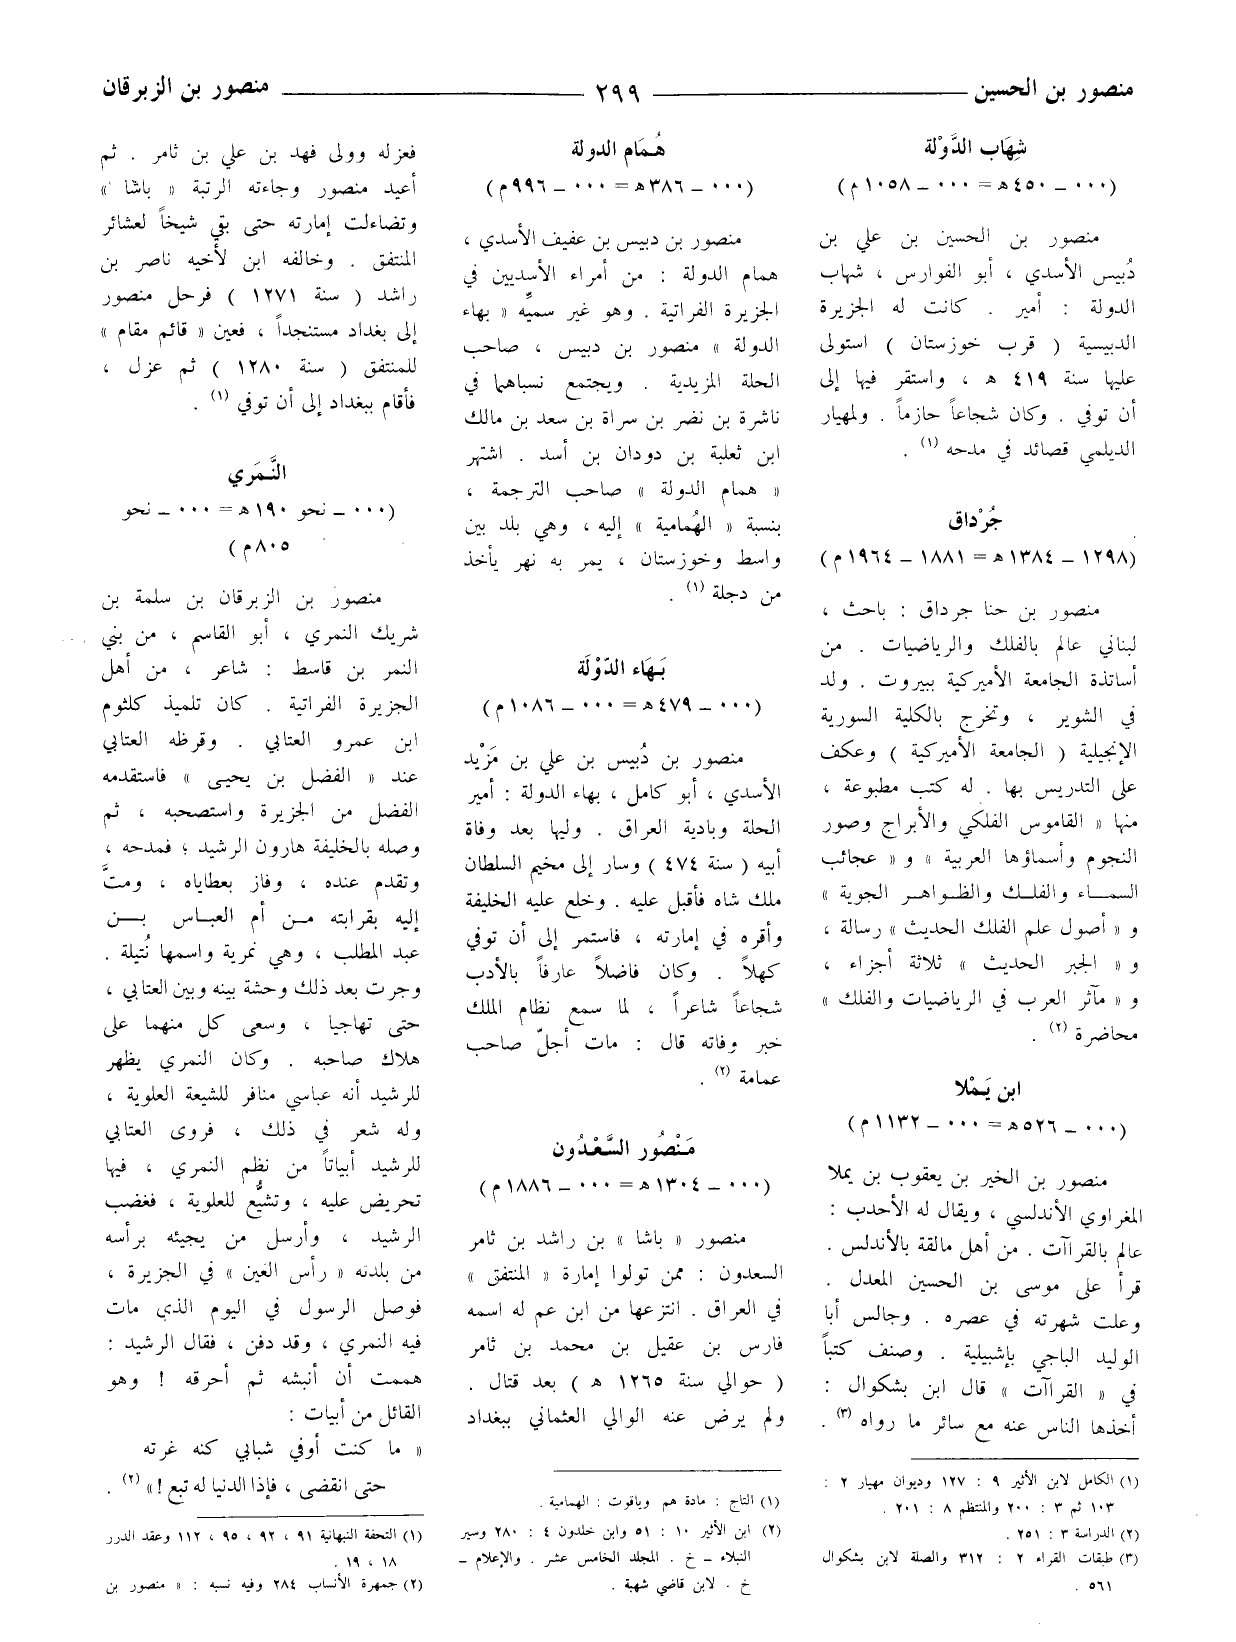 منصور بن الحسين ــــــ ٢٩٩ ــــــ منصور بن الزبرقان
شِهَاب الدَّوْلة
(٠٠٠ ـ ٤٥٠ هـ = ٠٠٠ ـ ١٠٥٨ م)
منصور بن الحسين بن علي بن
دُبيس الأسدي ، أبو الفوارس ، شهاب
الدولة : أمير . كانت له الجزيرة
الدبيسية ( قرب خوزستان ) استولى
عليها سنة ٤١٩ هـ ، واستقر فيها إلى
أن توفي . وكان شجاعاً حازماً . ولمهيار
الديلمي قصائد في مدحه (١) .
جُرْداق
(١٢٩٨ ـ ١٣٨٤ هـ = ١٨٨١ ـ ١٩٦٤ م)
منصور بن حنا جرداق : باحث ،
لبناني عالم بالفلك والرياضيات . من
أساتذة الجامعة الأميركية ببيروت . ولد
في الشوير ، وتخرج بالكلية السورية
الإنجيلية ( الجامعة الأميركية ) وعكف
على التدريس بها . له كتب مطبوعة ،
منها « القاموس الفلكي والأبراج وصور
النجوم وأسماؤها العربية » و « عجائب
السمـــاء والفلــك والظـواهــر الجوية »
و « أصول علم الفلك الحديث » رسالة ،
و « الجبر الحديث » ثلاثة أجزاء ،
و « مآثر العرب في الرياضيات والفلك »
محاضرة (٢) .
ابن يَمْلا
(٠٠٠ ـ ٥٢٦ هـ = ٠٠٠ ـ ١١٣٢ م)
منصور بن الخير بن يعقوب بن يملا
المغراوي الأندلسي ، ويقال له الأحدب :
عالم بالقراآت . من أهل مالقة بالأندلس .
قرأ على موسى بن الحسين المعدل .
وعلت شهرته في عصره . وجالس أبا
الوليد الباجي بإشبيلية . وصنف كتباً
في « القراآت » قال ابن بشكوال :
أخذها الناس عنه مع سائر ما رواه (٣) .
(١) الكامل لابن الأثير ٩ : ١٢٧ وديوان مهيار ٢ :
١٠٣ ثم ٣ : ٢٠٠ والمنتظم ٨ : ٢٠١ .
(٢) الدراسة ٣ : ٢٥١ .
(٣) طبقات القراء ٢ : ٣١٢ والصلة لابن بشكوال
٥٦١ .
هُمَام الدولة
(٠٠٠ ـ ٣٨٦ هـ = ٠٠٠ ـ ٩٩٦ م)
منصور بن دبيس بن عفيف الأسدي ،
همام الدولة : من أمراء الأسديين في
الجزيرة الفراتية . وهو غير سميِّه « بهاء
الدولة » منصور بن دبيس ، صاحب
الحلة المزيدية . ويجتمع نسباهما في
ناشرة بن نضر بن سراة بن سعد بن مالك
ابن ثعلبة بن دودان بن أسد . اشتهر
« همام الدولة » صاحب الترجمة ،
بنسبة « الهُمامية » إليه ، وهي بلد بين
واسط وخوزستان ، يمر به نهر يأخذ
من دجلة (١) .
بَهَاء الدّوْلَة
(٠٠٠ ـ ٤٧٩ هـ = ٠٠٠ ـ ١٠٨٦ م)
منصور بن دُبيس بن علي بن مَزْيد
الأسدي ، أبو كامل ، بهاء الدولة : أمير
الحلة وبادية العراق . وليها بعد وفاة
أبيه ( سنة ٤٧٤ ) وسار إلى مخيم السلطان
ملك شاه فأقبل عليه . وخلع عليه الخليفة
وأقره في إمارته ، فاستمر إلى أن توفي
كهلاً . وكان فاضلاً عارفاً بالأدب
شجاعاً شاعراً ، لما سمع نظام الملك
خبر وفاته قال : مات أجلّ صاحب
عمامة (٢) .
مَنْصُور السَّعْدُون
(٠٠٠ ـ ١٣٠٤ هـ = ٠٠٠ ـ ١٨٨٦ م)
منصور « باشا » بن راشد بن ثامر
السعدون : ممن تولوا إمارة « المنتفق »
في العراق . انتزعها من ابن عم له اسمه
فارس بن عقيل بن محمد بن ثامر
( حوالي سنة ١٢٦٥ هـ ) بعد قتال .
ولم يرض عنه الوالي العثماني ببغداد
(١) التاج : مادة هم وياقوت : الهمامية .
(٢) ابن الأثير ١٠ : ٥١ وابن خلدون ٤ : ٢٨٠ وسير
النبلاء ـ خ . المجلد الخامس عشر . والإعلام ـ
خ . لابن قاضي شهبة .
فعزله وولى فهد بن علي بن ثامر . ثم
أعيد منصور وجاءته الرتبة « باشا »
وتضاءلت إمارته حتى بقي شيخاً لعشائر
المنتفق . وخالفه ابن لأخيه ناصر بن
راشد ( سنة ١٢٧١ ) فرحل منصور
إلى بغداد مستنجداً ، فعين « قائم مقام »
للمنتفق ( سنة ١٢٨٠ ) ثم عزل ،
فأقام ببغداد إلى أن توفي (١) .
النَّمَري
(٠٠٠ ـ نحو ١٩٠ هـ = ٠٠٠ ـ نحو
٨٠٥ م)
منصور بن الزبرقان بن سلمة بن
شريك النمري ، أبو القاسم ، من بني
النمر بن قاسط : شاعر ، من أهل
الجزيرة الفراتية . كان تلميذ كلثوم
ابن عمرو العتابي . وقرظه العتابي
عند « الفضل بن يحيى » فاستقدمه
الفضل من الجزيرة واستصحبه ، ثم
وصله بالخليفة هارون الرشيد ؛ فمدحه ،
وتقدم عنده ، وفاز بعطاياه ، ومتَّ
إليه بقرابته مــن أم العبـاس بــــن
عبد المطلب ، وهي نمرية واسمها نُتيلة .
وجرت بعد ذلك وحشة بينه وبين العتابي ،
حتى تهاجيا ، وسعى كل منهما على
هلاك صاحبه . وكان النمري يظهر
للرشيد أنه عباسي منافر للشيعة العلوية ،
وله شعر في ذلك ، فروى العتابي
للرشيد أبياتاً من نظم النمري ، فيها
تحريض عليه ، وتشيُّع للعلوية ، فغضب
الرشيد ، وأرسل من يجيئه برأسه
من بلدته « رأس العين » في الجزيرة ،
فوصل الرسول في اليوم الذي مات
فيه النمري ، وقد دفن ، فقال الرشيد :
هممت أن أنبشه ثم أحرقه ! وهو
القائل من أبيات :
« ما كنت أوفي شبابي كنه غرته
حتى انقضى ، فإذا الدنيا له تبع ! » (٢) .
(١) التحفة النبهانية ٩١ ، ٩٢ ، ٩٥ ، ١١٢ وعقد الدرر
١٨ ، ١٩ .
(٢) جمهرة الأنساب ٢٨٤ وفيه نسبه : « منصور بن